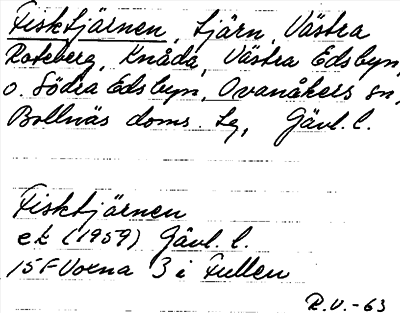 Fisktjärnen, tjärn, Västra
Roteberg, Knåda, Västra Edsbyn,
o. Södra Edsbyn, Ovanåkers sn,
Bollnäs doms. lg, Gävl. l.
Fisktjärnen
ek (1959) Gävl. l.
15F Voxna 3 i Fullen
R.V.-63